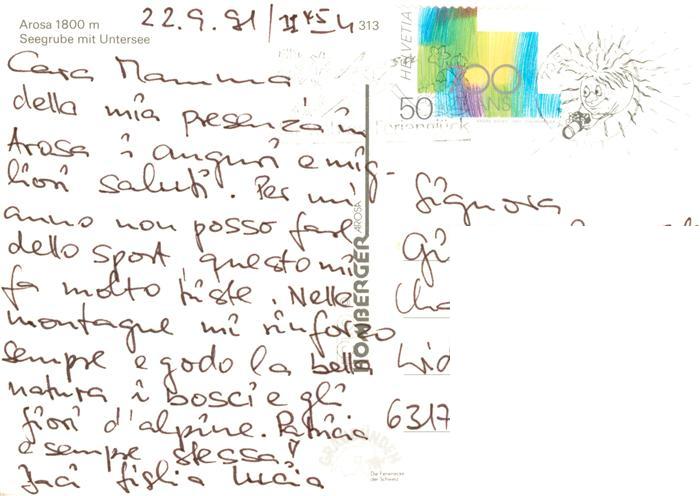 Arosa 1800 m
Seegrube mit Untersee
22.9.91/11 45 h
313
Cara Mamma
della mia presenza in
Arosa i auguri e mig-
liori saluti. Per mi
anno non posso fare
dello sport, questo mi
fa molto triste. Nelle
montagne mi rinforzo
sempre e godo la bella
natura i bosci e gli
fiori d'alpine. Patricia
e sempre stessa!
figlia Lucia
HELVETIA
50
700
ANS
Ferienglück
HOMBERGER AROSA
Signora
Gi
Cha
Lid
6317
GRAUBÜNDEN
Die Ferienecke
der Schweiz